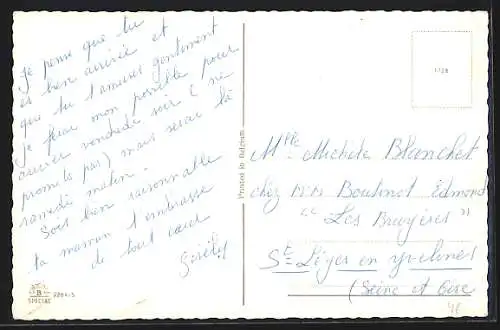 Je pense que tu
es bien arrivée et
que tu t'amuses gentiment
je ferai mon possible pour
arriver vendredi soir (ne
promets pas) mais serai là
samedi matin.
Sois bien raisonnable
ta maman t'embrasse
de tout cœur
Printed in Belgium
1128
Mlle Michele Blanchet
chez MM Boutinot Edmond
"Les Bruyères"
St Léger en Yvelines
(Seine et Oise)
SPECIAL